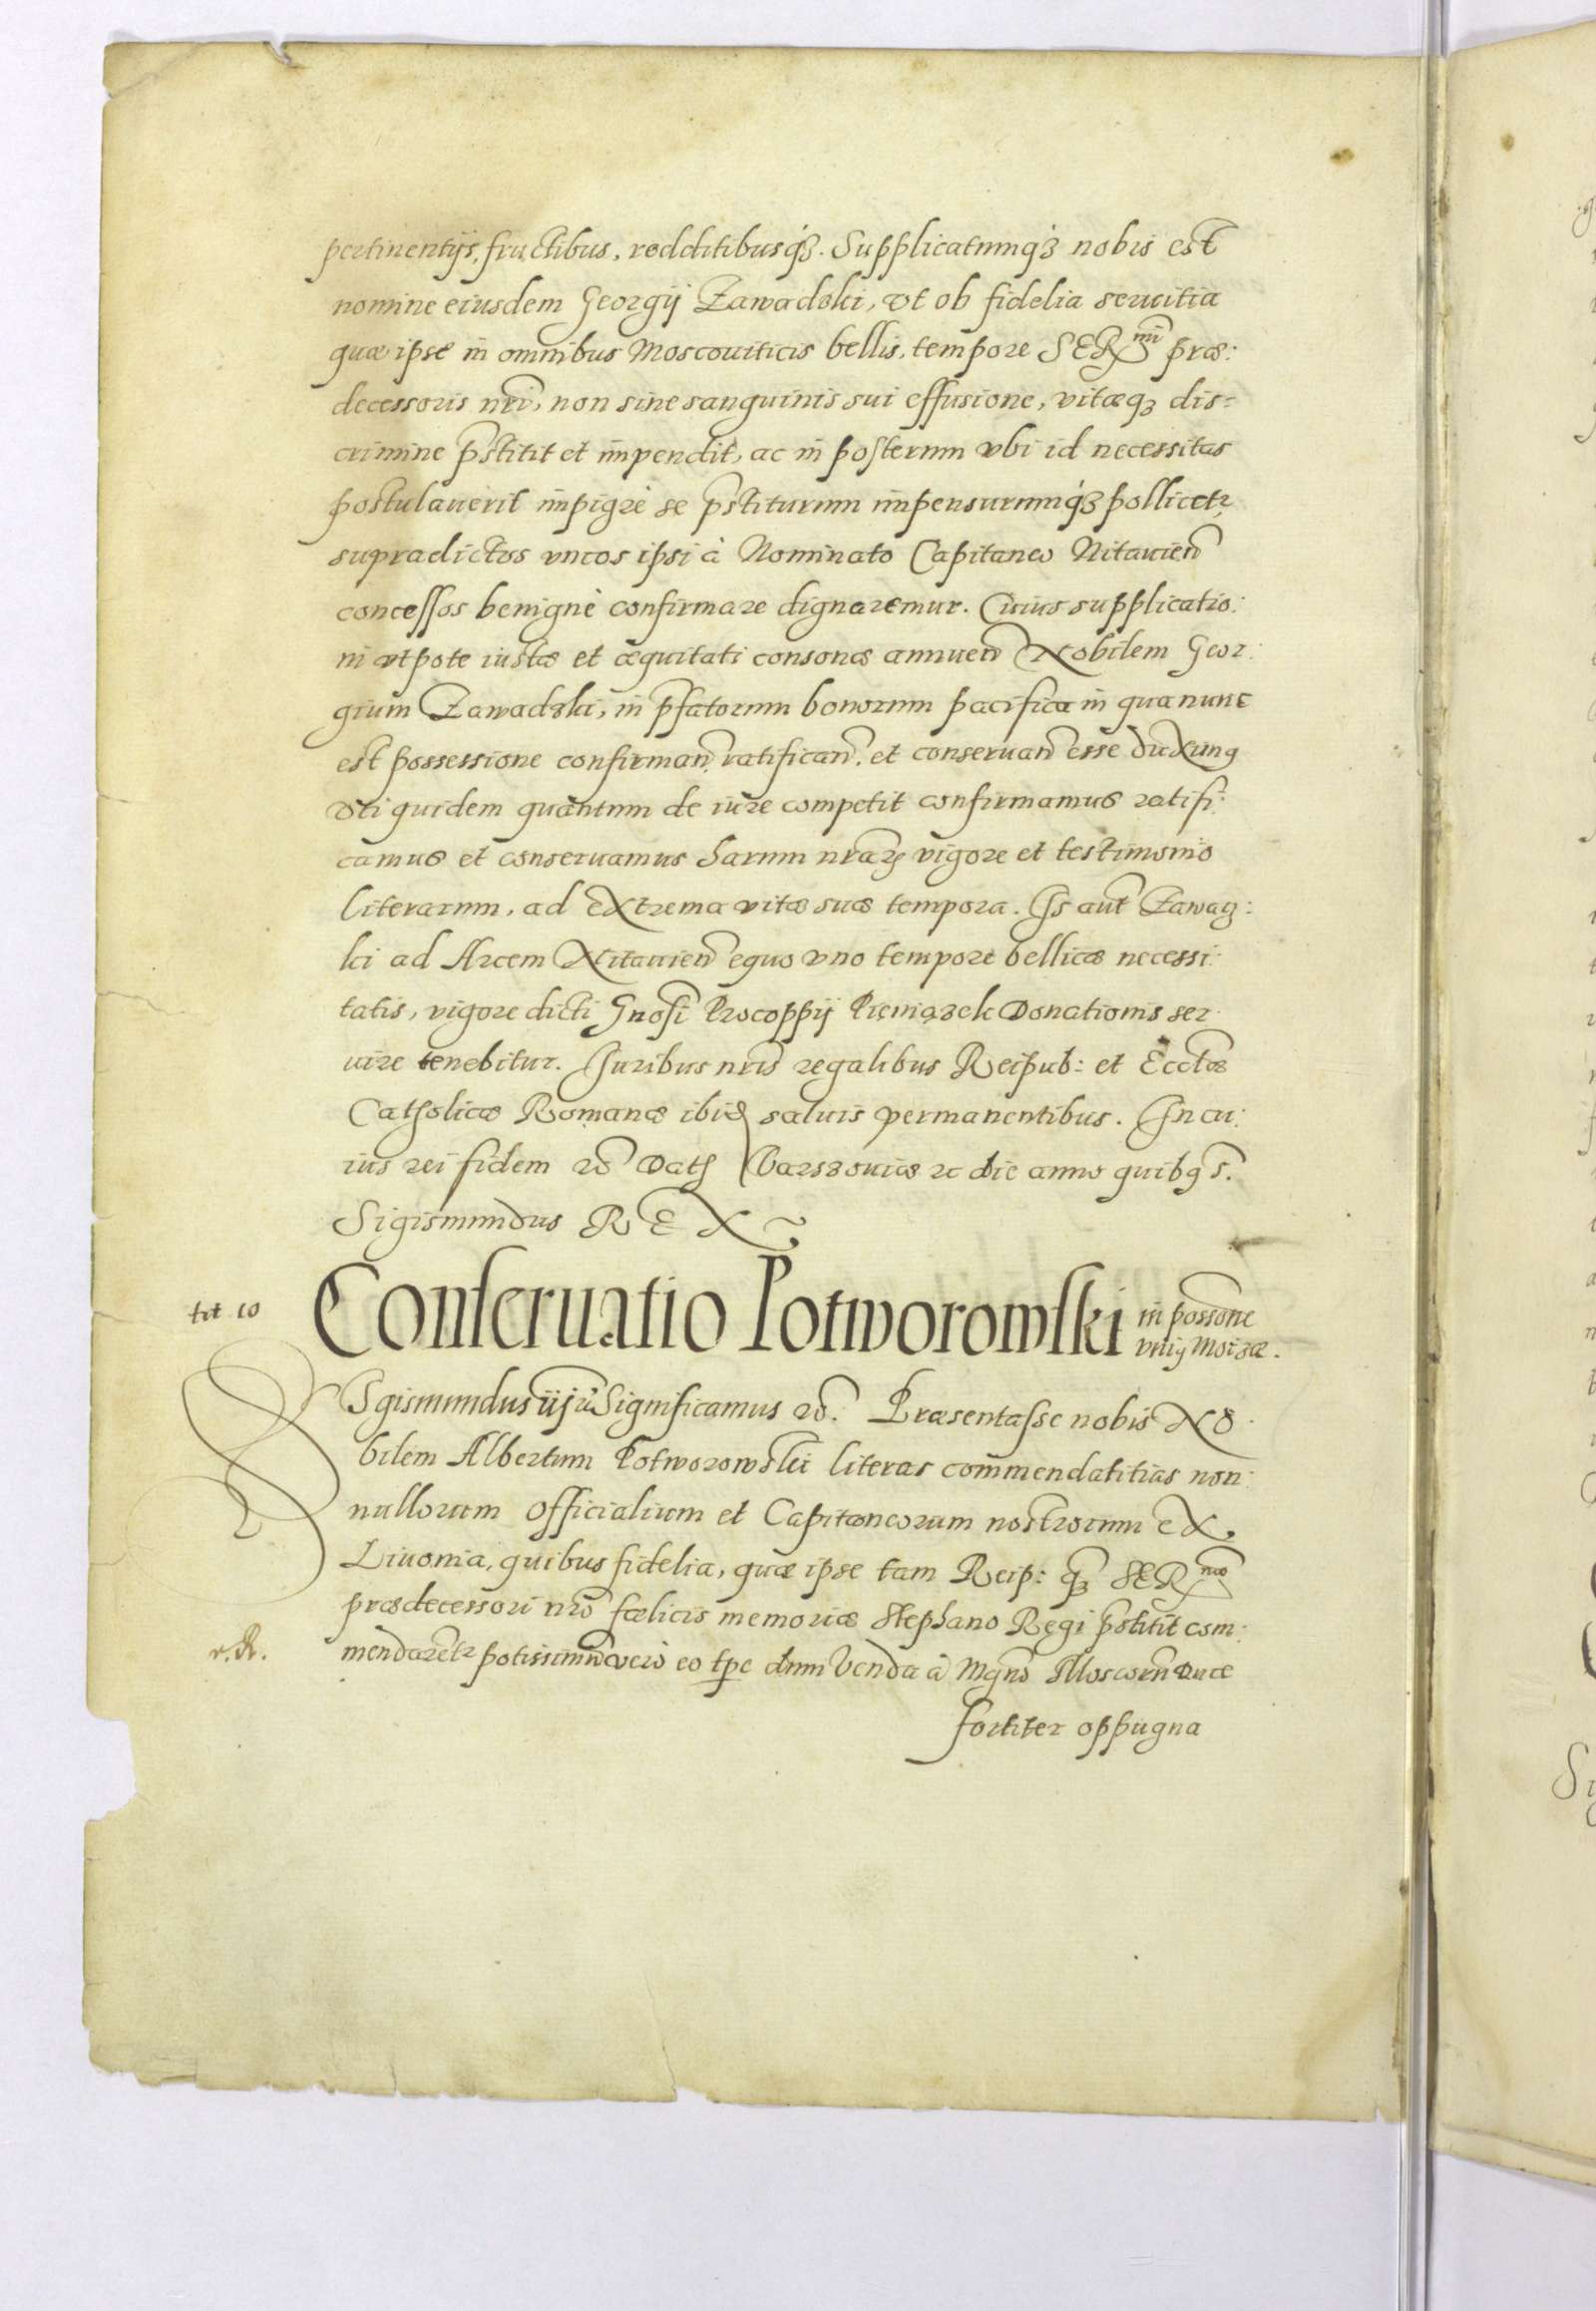 pertinentijs, fructibus, redditibusq́ꝫ. Supplicatumq́ꝫ nobis est
nomine eiusdem Georgij Zawadski, vt ob fidelia seruitia
quæ ipse in omnibus Moscouiticis bellis, tempore SERmi præ:
decessoris nri, non sine sanguinis sui effusione, vitæqꝫ dis=
crimine pstitit et impendit, ac in posterum vbi id necessitas
postulauerit impigrè se pstiturum impensurumq́ꝫ pollicetr,
supradictos vncos ipsi à Nominato Capitaneo Nitauien
concessos benignè confirmare dignaremur. Cuius supplicatio:
ni vtpote iustæ et æquitati consonæ annuen Nobilem Geor:
gium Zawadski, in pfatorum bonorum pacifica in qua nunc
est possessione confirman, ratifican, et conseruan esse duximꝰ
Vti quidem quantum de iure competit confirmamus ratifi:
camus et conseruamus harum nraꝝ vigore et testimonio
literarum, ad extrema vitæ suæ tempora. Is aut Zawaz:
ki ad Arcem Nitauien equo vno tempore bellicæ necessi:
tatis, vigore dicti Gnosi Procoppij Pieniązek Donationis ser:
uire tenebitur. Iuribus nris regalibus Reipub: et Ecclæ
Catholicæ Romanæ ibid saluis permanentibus. In cu:
ius rei fidem ꝛc Datꝭ Varsouiæ ꝛc die anno quibꝰ s.
Sigismundus REX
tit 10
Conseruatio Potworowski in possone
vniꝰ Moizæ.
Sgismundus iijus Significamus ꝛc. Præsentasse nobis No:
bilem Albertum Potworowski literas commendatitias non:
nullorum Officialium et Capitaneorum nostrorum ex
Liuonia, quibus fidelia, quæ ipse tam Reip: qꝫ SERmo
prædecessori nro fælicis memoriæ Stephano Regi pstitit com:
r. R.
mendaretr potissimu verò eo tpe dum Venda à Mgno Moscorum Duce
fortiter oppugna